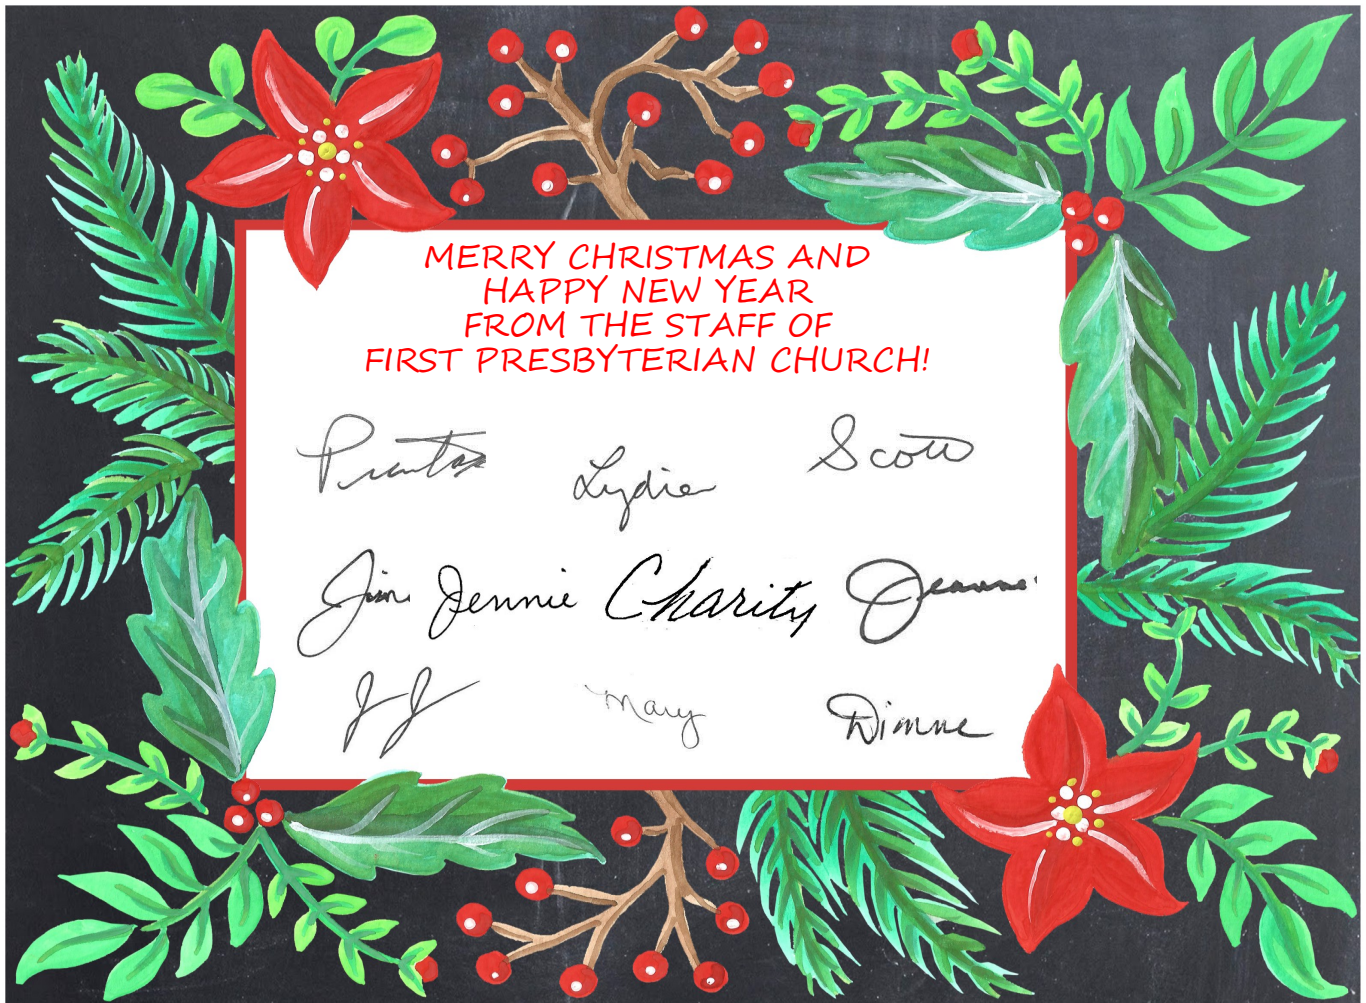 MERRY CHRISTMAS AND
HAPPY NEW YEAR
FROM THE STAFF OF
FIRST PRESBYTERIAN CHURCH!
Lydia Scott
Jim Jennie Charity Jeanne
JJ Mary Dianne